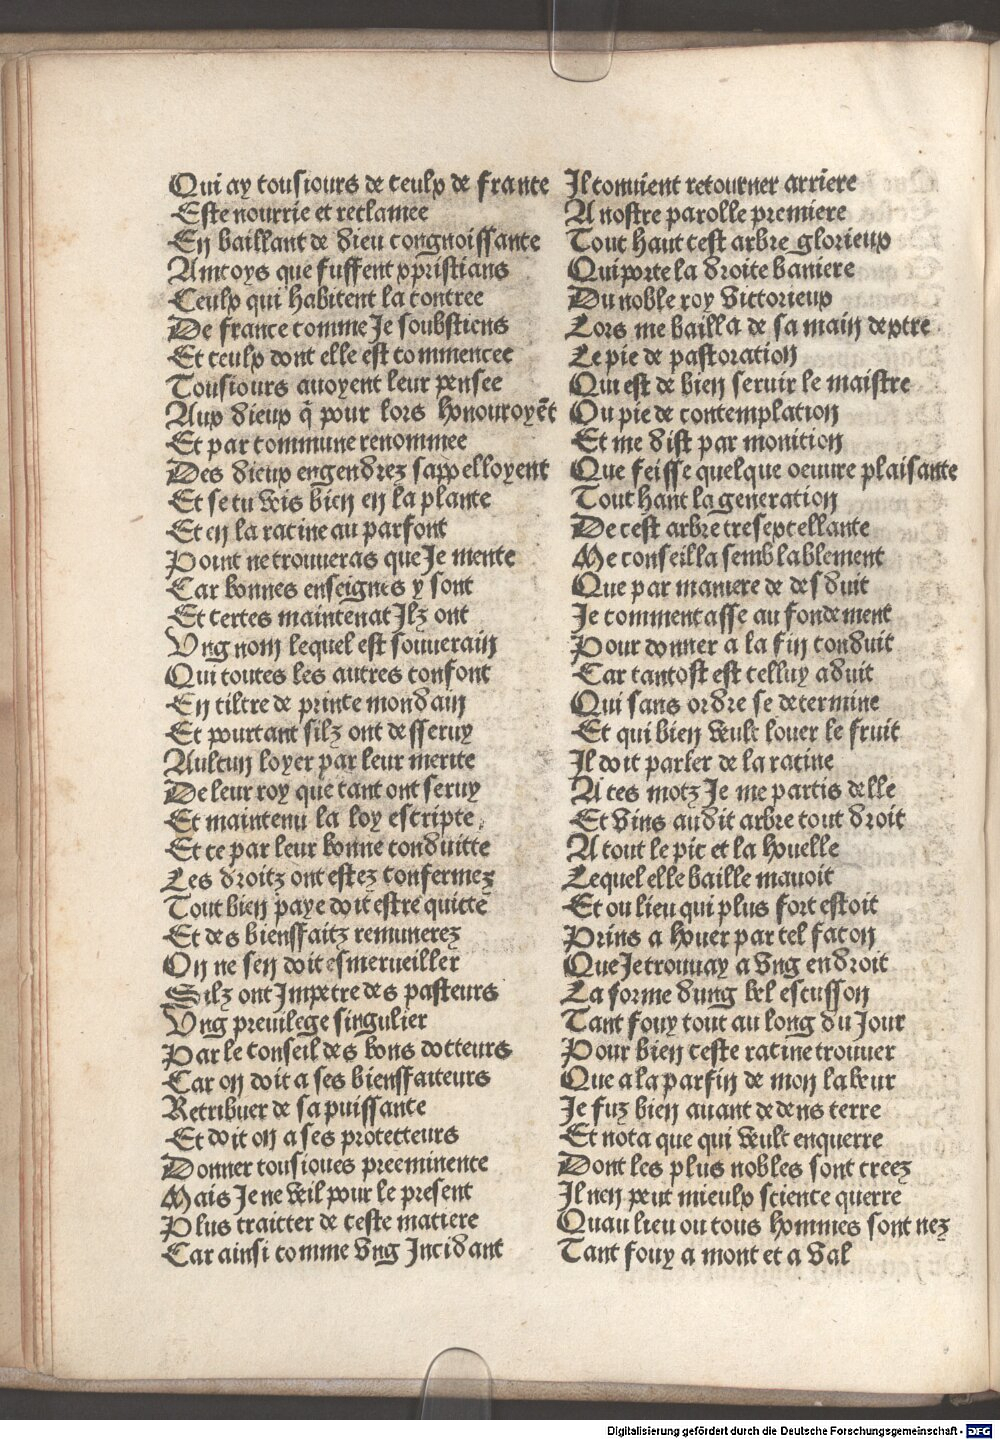 Qui ay tousiours de ceulx de france
Este nourrie et reclamee
En baillant de dieu congnoissance
Aincoys que fussent xpristians
Ceulx qui habitent la contree
De france comme Je soubstiens
Et ceulx dont elle est commencee
Tousiours auoyent leur pensee
Aux dieux q̄ pour lors honouroyēt
Et par commune renommee
Des dieux engendrez sappelloyent
Et se tu veis bien en la plante
Et en la racine au parfont
Point ne trouueras que Je mente
Car bonnes enseignes y sont
Et certes maintenāt Ilz ont
Vng nom lequel est souuerain
Qui toutes les autres confont
En tiltre de prince mondain
Et pourtant silz ont desseruy
Aulcun loyer par leur merite
De leur roy que tant ont seruy
Et maintenu la loy escripte
Et ce par leur bonne conduitte
Les droitz ont estez confermez
Tout bien paye doit estre quicte
Et des bienffaitz remunerez
On ne sen doit esmerueiller
Silz ont Impetre des pasteurs
Vng preuilege singulier
Par le conseil des bons docteurs
Car on doit a ses bienffaiteurs
Retribuer de sa puissance
Et doit on a ses protecteurs
Donner tousioues preeminence
Mais Je ne veil pour le present
Plus traicter de ceste matiere
Car ainsi comme Vng Incidant
Il conuient retourner arriere
A nostre parolle premiere
Tout haut cest arbre glorieux
Qui porte la droite baniere
Du noble roy victorieux
Lors me bailla de sa main dextre
Le pie de pastoration
Qui est de bien seruir le maistre
Ou pie de contemplation
Et me dist par monition
Que feisse quelque oeuure plaisante
Tout hant la generation
De cest arbre tresexcellante
Me conseilla semblablement
Que par maniere de desduit
Je commencasse au fondement
Pour donner a la fin conduit
Car tantost est celluy aduit
Qui sans ordre se determine
Et qui bien veult louer le fruit
Il doit parler de la racine
A ces motz Je me partis delle
Et vins audit arbre tout droit
A tout le pic et la houelle
Lequel elle baille mauoit
Et ou lieu qui plus fort estoit
Prins a houer par tel facon
Que Je trouuay a Vng endroit
La forme dung bel escusson
Tant fouy tout au long du Jour
Pour bien ceste racine trouuer
Que a la parfin de mon labeur
Je fuz bien auant dedens terre
Et nota que qui veult enquerre
Dont les plus nobles sont creez
Il nen peut mieulx science querre
Quau lieu ou tous hommes sont nez
Tant fouy a mont et a val
Digitalisierung gefördert durch die Deutsche Forschungsgemeinschaft - DFG